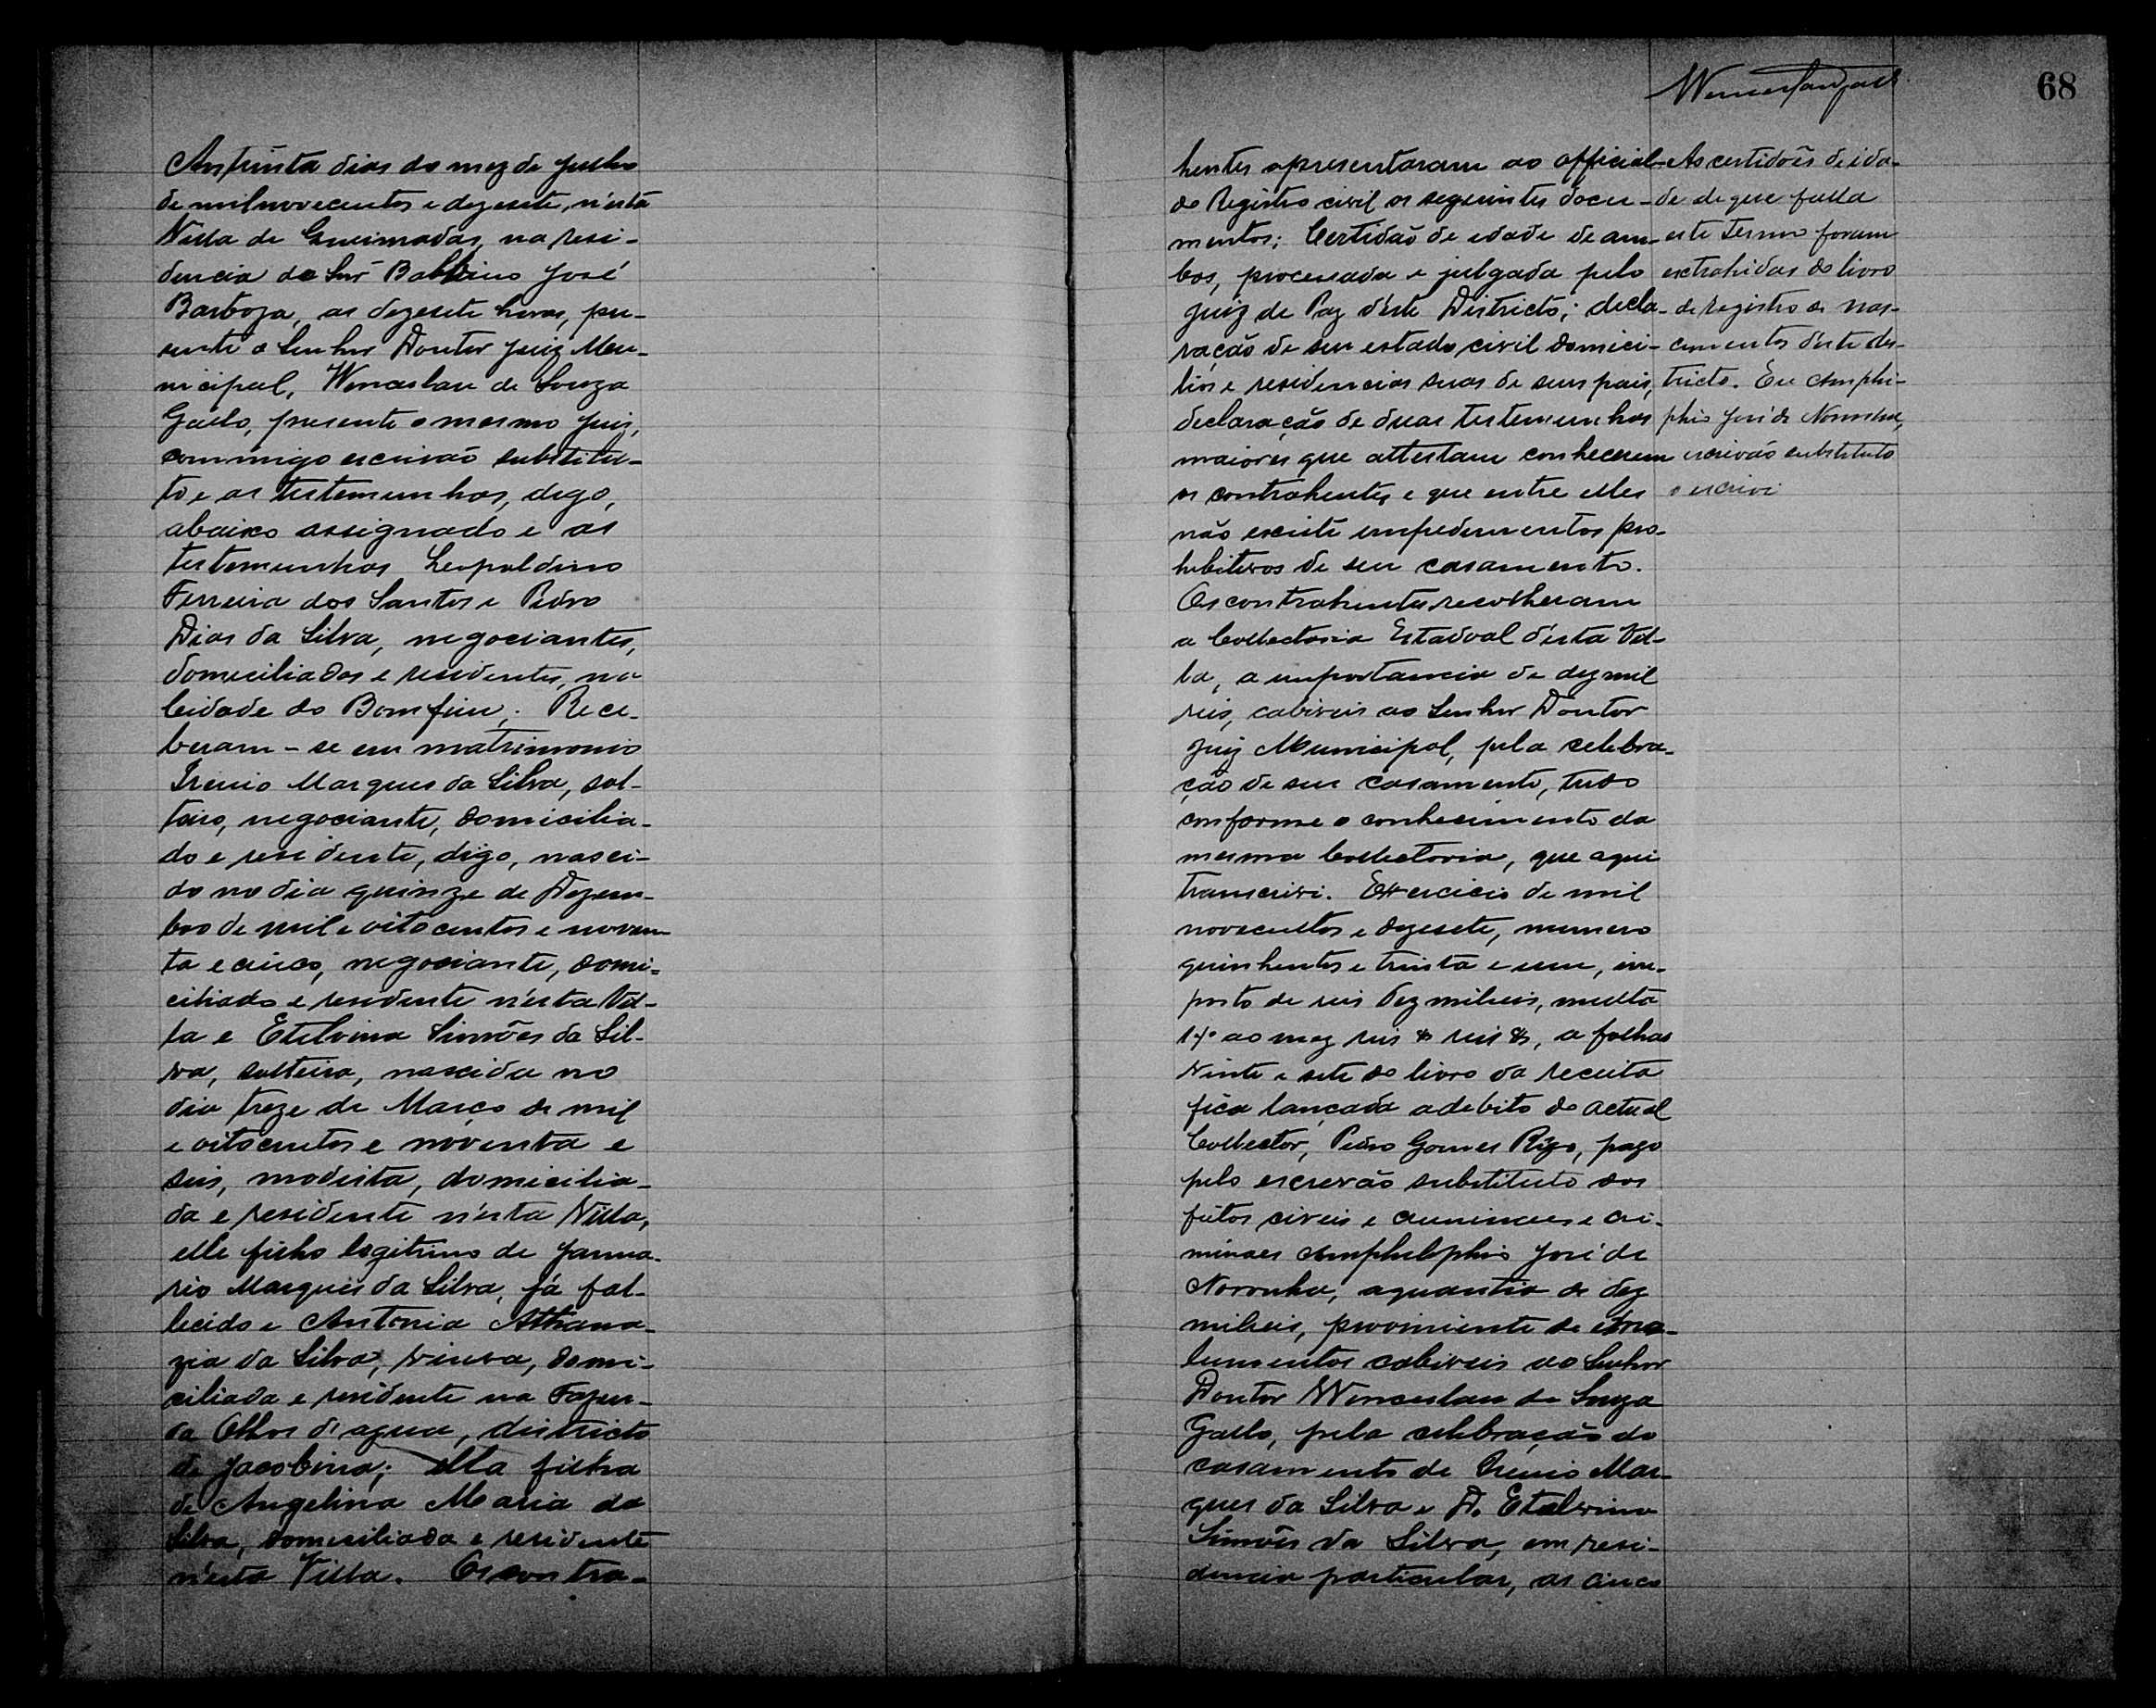 Aos trinta dias do mez de Julho
de mil novecentos e dezesete, n'esta
Villa de Queimadas, na resi-
dencia do Snr Balbino José
Barboza, as dezesete horas, pre-
sente o Senhor Doutor Juiz Mu-
nicipal, Wenceslau de Souza
Gallo, presente o mesmo Juiz,
commigo escrivão substitu-
to e as testemunhas, digo,
abaixo assignado e as
testemunhas Leopoldino
Ferreira dos Santos e Pedro
Dias da Silva, negociantes,
domiciliados e residentes, na
Cidade do Bomfim. Rece-
beram-se em matrimonio
Irenio Marques da Silva, sol-
teiro, negociante, domicilia-
do e residente, digo, nasci-
do no dia quinze de Dezem-
bro de mil e oitocentos e noven-
ta e cinco, negociante, domi-
ciliado e residente n'esta Vil-
la e Etelvina Simões da Sil-
va, solteira, nascida no
dia treze de Março de mil
e oitocentos e noventa e
seis, modista, domicilia-
da e residente n'esta Villa,
elle filho legitimo de Janua-
rio Marques da Silva, já fal-
lecido e Antonia Athana-
zia da Silva, viuva, domi-
ciliada e residente na Fazen-
da Olhos d'agua, districto
de Jacobina; ella filha
de Angelina Maria da
Silva, domiciliada e residente
n'esta Villa. Os contra-
68
hentes apresentaram ao official
do Registro civil os seguintes docu-
mentos: Certidão de idade de am-
bos, processada e julgada pelo
Juiz de Paz d'este Districto; decla-
ração de seu estado civil domici-
lios e residencias suas de seus pais,
declaração de duas testemunhas
maiores que attestam conhecerem
os contrahentes e que entre elles
não existe empedimentos pro-
hibitivos de seu casamento.
Os contrahentes recolheram
a Collectoria Estadoal d'esta Vil-
la, a importancia de dez mil
reis, cabiveis ao Senhor Doutor
Juiz Municipal, pela celebra-
ção de seu casamento, tudo
conforme o conhecimento da
mesma Collectoria, que aqui
transcrivi. Exercicio de mil
novecentos e dezesete, numero
quinhentos e trinta e um, im-
posto de reis dez mil reis, multa
1% ao mez reis $ reis $, a folhas
Vinte e sete do livro da receita
fica lançada a debito do actual
Collector, Pedro Gomes Rêgo, pago
pelo escrevão substituto dos
feitos civeis e criminaes e cri-
minaes Amphilophio José de
Noronha, a quantia de dez
milreis, proviniente de emo-
lumentos cabiveis ao Senhor
Doutor Wenceslau de Souza
Gallo, pela celebração do
casamento de Irenio Mar-
ques da Silva e D. Etelvina
Simões da Silva, em resi-
dencia particular, as cinco
As certidões de ida-
de de que falla
este termo foram
extrahidas do livro
de registro de nas-
cimentos d'este dis-
tricto. Eu Amphi-
phio José de Noronha,
escrivão substituto
o escrivi